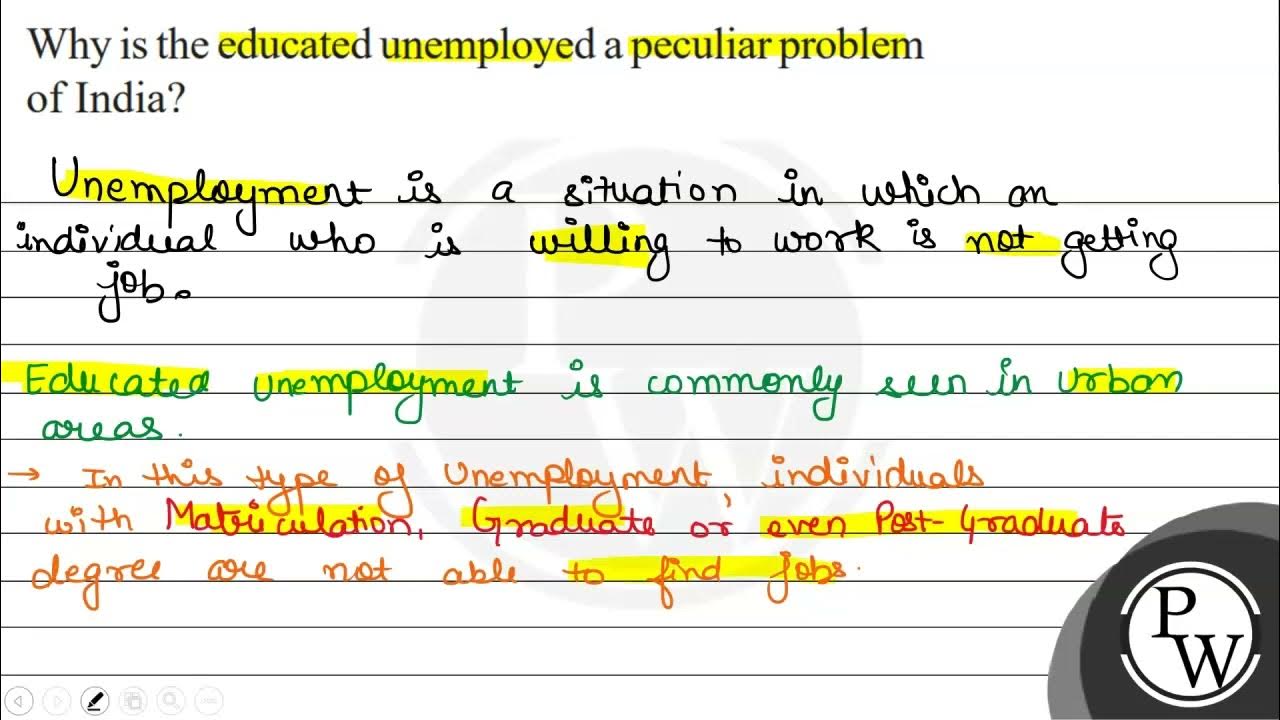 Why is the educated unemployed a peculiar problem
of India?
Unemployment is a situation in which an
individual who is willing to work is not getting
job.
Educated unemployment is commonly seen in urban
areas.
→ In this type of Unemployment, individuals
with Matriculation, Graduate or even Post-Graduate
degree are not able to find jobs.
PW
PW